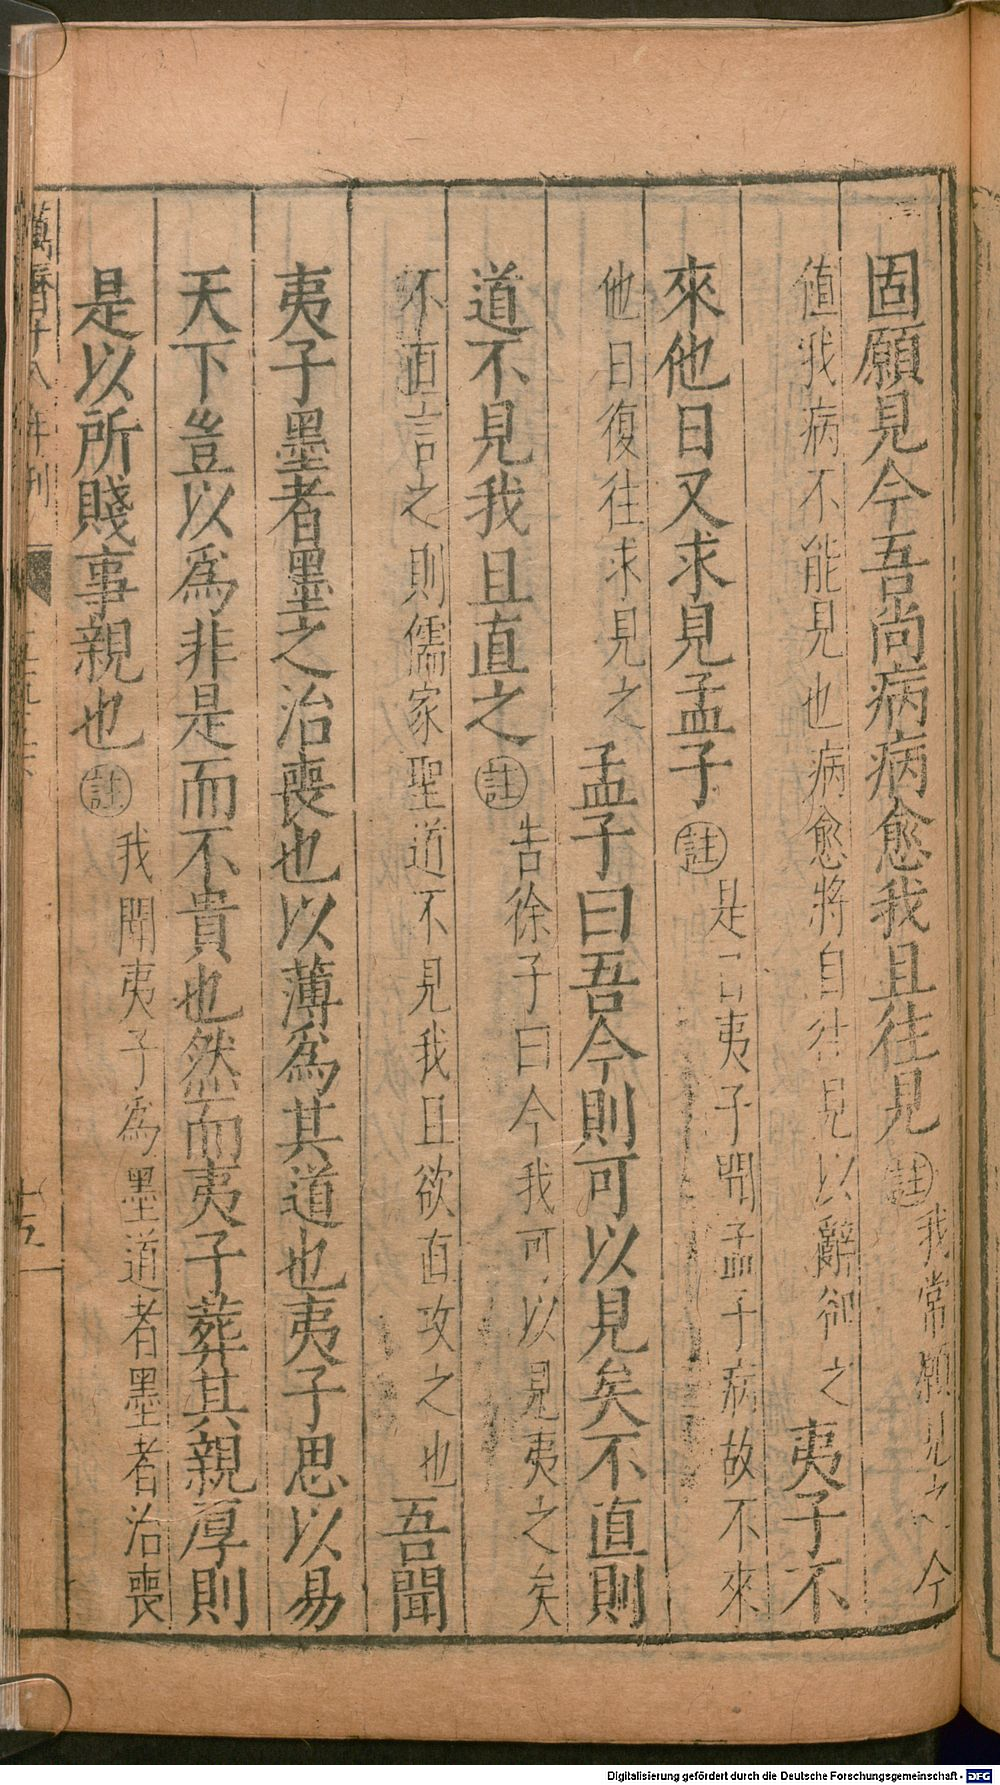 固願見今吾尚病病愈我且往見註我常願見之今
値我病不能見也病愈將自往見以辭卻之夷子不
來他日又求見孟子註是日夷子聞孟子病故不來
他日復往求見之孟子曰吾今則可以見矣不直則
道不見我且直之註告徐子曰今我可以見夷之矣
不直言之則儒家聖道不見我且欲直攻之也吾聞
夷子墨者墨之治喪也以薄爲其道也夷子思以易
天下豈以爲非是而不貴也然而夷子葬其親厚則
是以所賤事親也註我聞夷子爲墨道者墨者治喪
萬曆十八年刊
十五
Digitalisierung gefördert durch die Deutsche Forschungsgemeinschaft - DFG